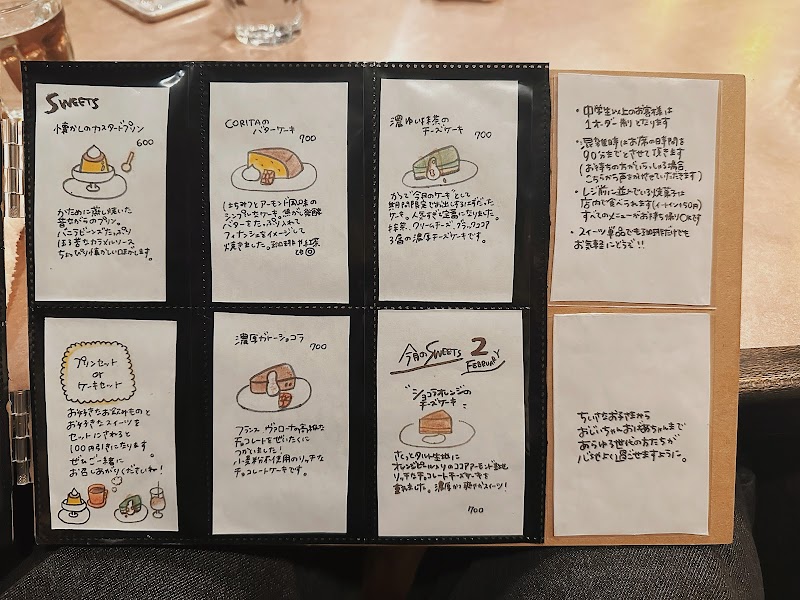 SWEETS
懐かしのカスタードプリン
600
かために蒸し焼いた
昔ながらのプリン。
バニラビーンズたっぷり
ほろ苦なカラメルソース。
ちょっぴり懐かしい口どけします。
CORITAの
バターケーキ
700
はちみつとアーモンド風味の
シンプルなケーキ。焦がし発酵
バターをたっぷり入れて
フィナンシェをイメージして
焼きました。珈琲や紅茶
と◎
濃ゆい抹茶の
チーズケーキ
700
かつて"今月のケーキ"として
期間限定でお出しするはずだった
ケーキ。人気すぎて定番になりました。
抹茶、クリームチーズ、ブラックココア
3層の濃厚チーズケーキです。
・中学生以上のお客様は
1オーダー制となります
・混雑時はお席の時間を
90分までとさせて頂きます
(お待ちの方がいらっしゃる場合
こちらから声をかけさせていただきます)
・レジ前に並んでいる焼菓子は
店内で食べられます(イートイン+50円)
すべてのメニューがお持ち帰りOKです
・スイーツ単品でも珈琲だけでも
お気軽にどうぞ!!
プリンセット
or
ケーキセット
お好きなお飲みものと
お好きなスイーツを
セットにされると
100円引きになります。
ぜひご一緒に
お召しあがりくださいね!
濃厚ガトーショコラ
700
フランス ヴァローナの高級な
チョコレートをぜいたくに
つかいました!
小麦粉不使用のリッチな
チョコレートケーキです。
今月のSWEETS 2
FEBRUARY
"ショコラオレンジの
チーズケーキ"
さくっとタルト生地に
オレンジピール入りのココアアーモンド生地
リッチなチョコレートチーズケーキを
重ねました。濃厚かつ爽やかスイーツ!
700
ちいさなお子さまから
おじいちゃんおばあちゃんまで
あらゆる世代の方たちが
心地よく過ごせますように。